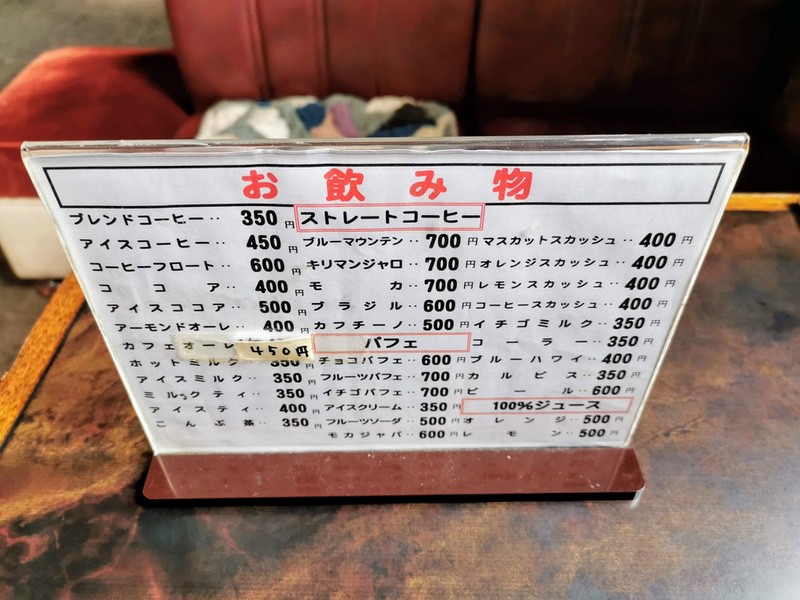 お飲み物
ブレンドコーヒー‥350円
アイスコーヒー‥450円
コーヒーフロート‥600円
ココア‥400円
アイスココア‥500円
アーモンドオーレ‥400円
カフェオーレ 450円
ホットミルク‥350円
アイスミルク‥350円
ミルクティ‥350円
アイスティ‥400円
こんぶ茶‥350円
ストレートコーヒー
ブルーマウンテン‥700円
キリマンジャロ‥700円
モカ‥700円
ブラジル‥600円
カプチーノ‥500円
パフェ
チョコパフェ‥600円
フルーツパフェ‥700円
イチゴパフェ‥700円
アイスクリーム‥350円
フルーツソーダ‥500円
モカジャバ‥600円
マスカットスカッシュ‥400円
オレンジスカッシュ‥400円
レモンスカッシュ‥400円
コーヒースカッシュ‥400円
イチゴミルク‥350円
コーラー‥350円
ブルーハワイ‥400円
カルピス‥350円
ビール‥600円
100%ジュース
オレンジ‥500円
レモン‥500円